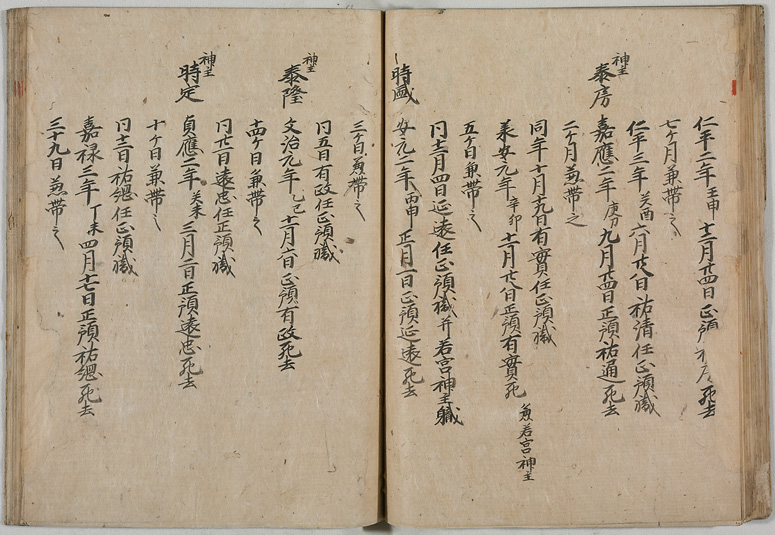 仁平二年壬申十二月廿四日正預死去
七ケ月兼帯之
仁平三年癸酉六月廿八日祐清任正預職
神主
泰房
嘉應二年庚寅九月廿四日正預祐通死去
二ケ月兼帯之
同年十月十九日有實任正預職
承安元年辛卯十二月廿八日正預有實死 兼若宮神主
五ケ日兼帯之
同十二月四日延遠任正預職并若宮神主職
時盛
安元二年丙申正月一日正預延遠死去
三ケ日兼帯之
同五日有政任正預職
神主
泰隆
文治元年乙巳十二月六日正預有政死去
十四ケ日兼帯之
同廿日遠忠任正預職
神主
時定
貞應二年癸未三月二日正預遠忠死去
十ケ日兼帯之
同十二日祐継任正預職
嘉禄三年丁未四月十七日正預祐継死去
三十九日兼帯之